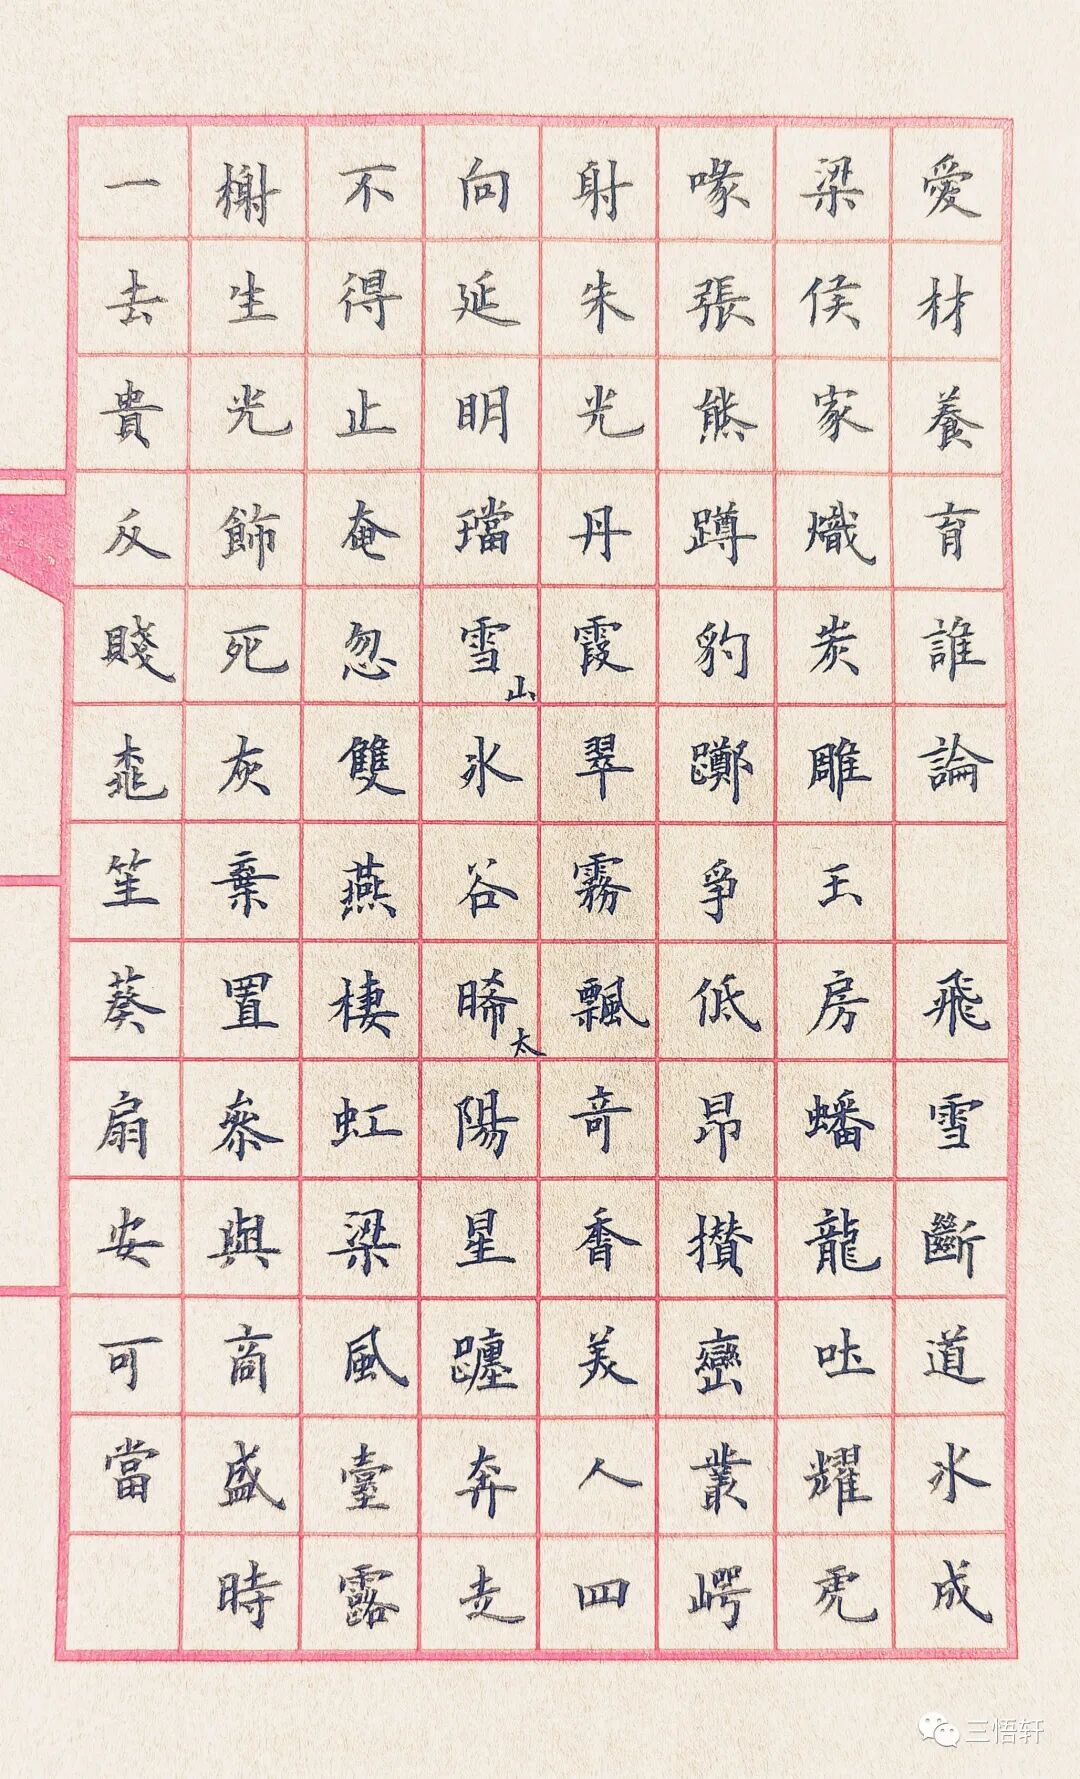 愛材養育誰論 飛雪斷道氷成
梁侯家熾炭雕玉房蟠龍吐耀虎
喙張熊蹲豹躑爭低昂攢巒叢崿
射朱光丹霞翠霧飄奇香美人四
向延明璫雪山氷谷晞太陽星躔奔走
不得止奄忽雙燕棲虹梁風臺露
榭生光飾死灰棄置參與商盛時
一去貴反賤桃笙葵扇安可當
三悟轩